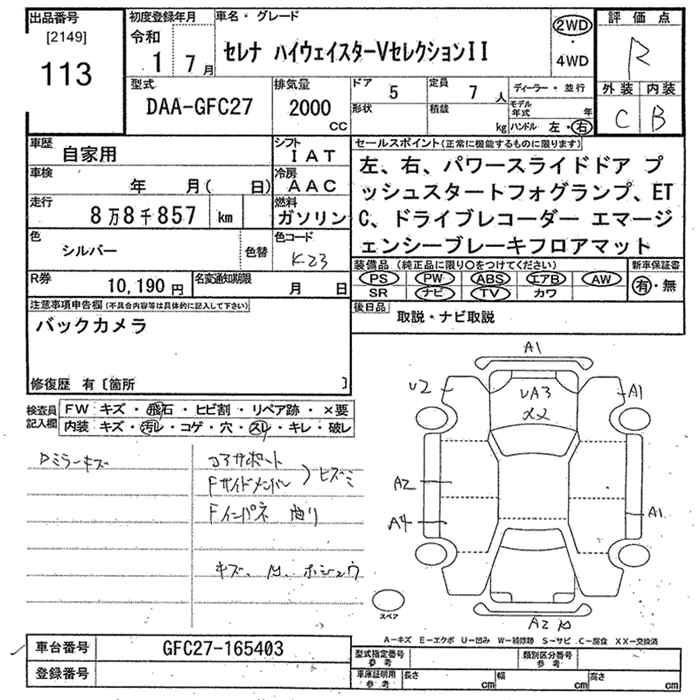 出品番号
[2149]
113
初度登録年月
令和
1 7月
車名・グレード
セレナ ハイウェイスターVセレクションII
2WD
・
4WD
評価点
R
外装 内装
C B
型式
DAA-GFC27
排気量
2000
CC
ドア 5
形状
定員 7 人
積載 kg
ディーラー・並行
モデル年式 年
ハンドル 左・右
車歴
自家用
シフト
IAT
車検
年 月( 日)
冷房
AAC
走行
8万8千857 km
燃料
ガソリン
色
シルバー
色替
色コード
K23
R券
10,190円
名変通知期限
月 日
セールスポイント(正常に機能するものに限ります)
左、右、パワースライドドア プ
ッシュスタートフォグランプ、ET
C、ドライブレコーダー エマージ
ェンシーブレーキフロアマット
装備品(純正品に限り○をつけてください)
PS PW ABS エアB AW
SR ナビ TV カワ
新車保証書
有・無
後日品
取説・ナビ取説
注意事項申告欄(不具合内容等は具体的に記入して下さい)
バックカメラ
修復歴 有〔箇所 〕
検査員
記入欄
FW キズ・飛石・ヒビ割・リペア跡・×要
内装 キズ・汚レ・コゲ・穴・スレ・キレ・破レ
Rミラーキズ
コアサポート
Fサイドメンバー
ヒズミ
Fインパネ 曲り
キズ、凹、ホシュウ
A1
U2
UA3
XX
A1
A2
A4
A1
A2
スペア
A-キズ E-エクボ U-凹み W-補修跡 S-サビ C-腐食 XX-交換済
車台番号
GFC27-165403
登録番号
型式指定番号
参考
類別区分番号
参考
車庫証明用
参考
長さ cm
幅 cm
高さ cm